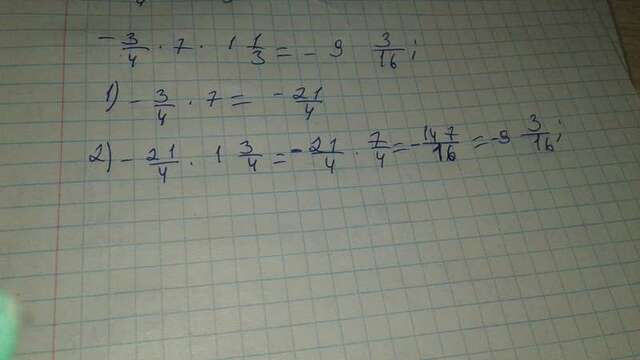 - 3/4 · 7 · 1 1/3 = - 9 3/16;
1) - 3/4 · 7 = - 21/4
2) - 21/4 · 1 3/4 = - 21/4 · 7/4 = - 147/16 = - 9 3/16;